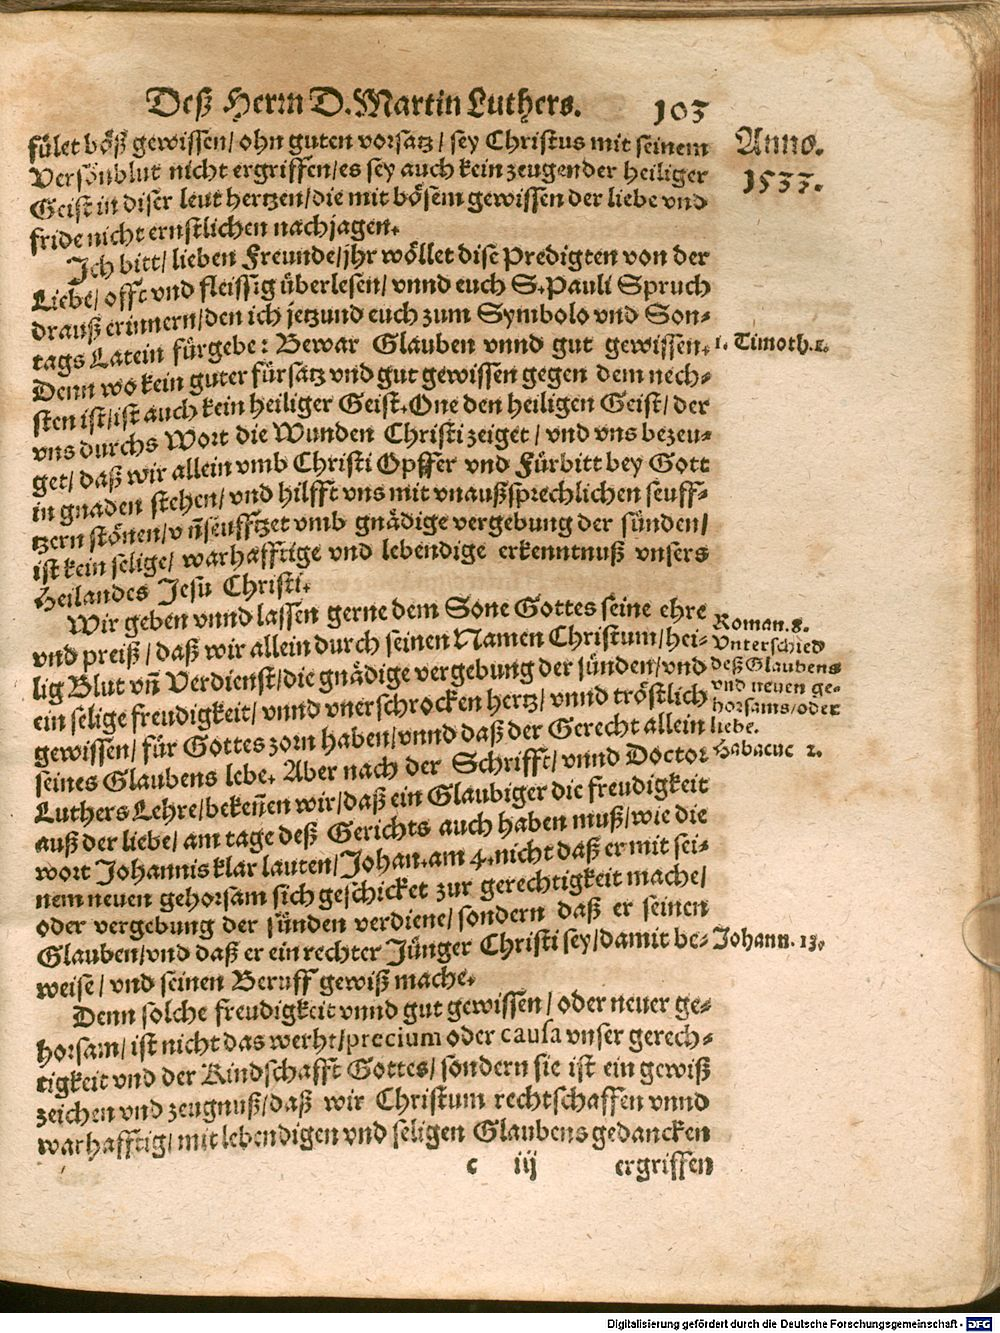 Deß Herrn D. Martin Luthers. 103
Anno.
1533.
fület böß gewissen/ ohn guten vorsatz/ sey Christus mit seinem
Versönblut nicht ergriffen/ es sey auch kein zeugen der heiliger
Geist in diser leut hertzen/ die mit bösem gewissen der liebe vnd
fride nicht ernstlichen nachjagen.
Ich bitt/ lieben Freunde/ jhr wöllet dise Predigten von der
Liebe/ offt vnd fleissig überlesen/ vnnd euch S. Pauli Spruch
drauß erinnern/ den ich jetzund euch zum Symbolo vnd Son⸗
tags Latein fürgebe: Bewar Glauben vnnd gut gewissen.
1. Timoth. 1.
Denn wo kein guter fürsatz vnd gut gewissen gegen dem nech⸗
sten ist/ ist auch kein heiliger Geist. One den heiligen Geist/ der
vns durchs Wort die Wunden Christi zeiget/ vnd vns bezeu⸗
get/ daß wir allein vmb Christi Opffer vnd Fürbitt bey Gott
in gnaden stehen/ vnd hilfft vns mit vnaußsprechlichen seuff⸗
tzern stönen/ vñ seufftzet vmb gnädige vergebung der sünden/
ist kein selige/ warhafftige vnd lebendige erkenntnuß vnsers
Heilandes Jesu Christi.
Wir geben vnnd lassen gerne dem Sone Gottes seine ehre
vnd preiß/ daß wir allein durch seinen Namen Christum/ hei⸗
lig Blut vñ Verdienst/ die gnädige vergebung der sünden/ vnd
ein selige freudigkeit/ vnnd vnerschrocken hertz/ vnnd tröstlich
gewissen/ für Gottes zorn haben/ vnnd daß der Gerecht allein
seines Glaubens lebe. Aber nach der Schrifft/ vnnd Doctor
Luthers Lehre/ bekeñen wir/ daß ein Glaubiger die freudigkeit
auß der liebe/ am tage deß Gerichts auch haben muß/ wie die
wort Johannis klar lauten/ Johan. am 4. nicht daß er mit sei⸗
nem neuen gehorsam sich geschicket zur gerechtigkeit mache/
oder vergebung der sünden verdiene/ sondern daß er seinen
Glauben/ vnd daß er ein rechter Jünger Christi sey/ damit be⸗
weise/ vnd seinen Beruff gewiß mache.
Roman. 8.
Vnterschied
deß Glaubens
vnd neuen ge⸗
horsams/ oder
liebe.
Habacuc 2.
Johann. 13.
Denn solche freudigkeit vnnd gut gewissen/ oder neuer ge⸗
horsam/ ist nicht das werht/ precium oder causa vnser gerech⸗
tigkeit vnd der Kindschafft Gottes/ sondern sie ist ein gewiß
zeichen vnd zeugnuß/ daß wir Christum rechtschaffen vnnd
warhafftig/ mit lebendigen vnd seligen Glaubens gedancken
c iij ergriffen
Digitalisierung gefördert durch die Deutsche Forschungsgemeinschaft - DFG